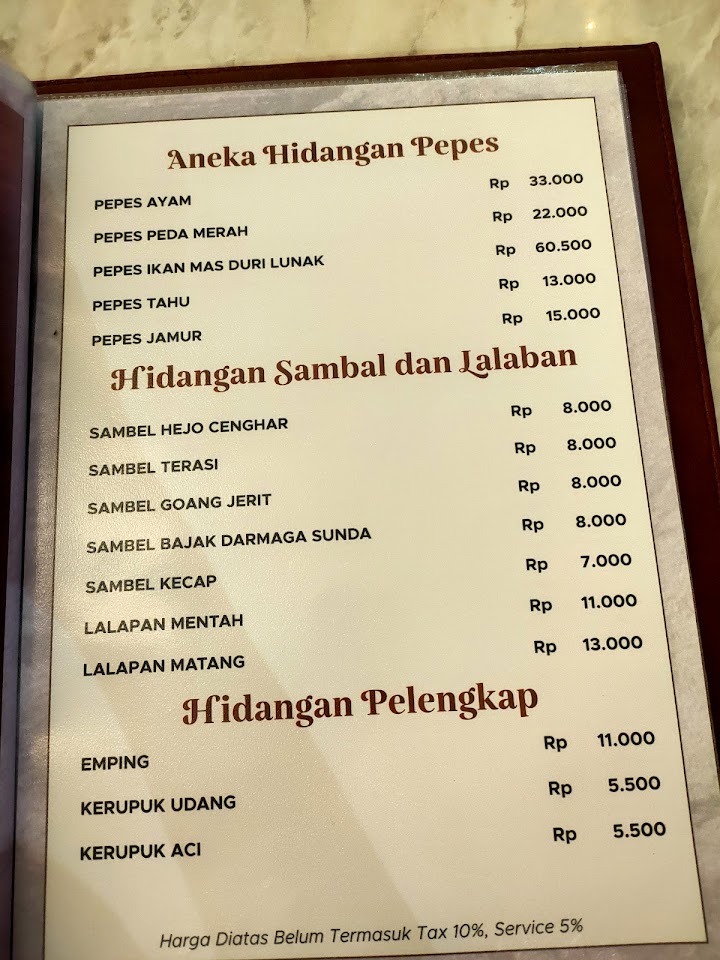 Aneka Hidangan Pepes
PEPES AYAM Rp 33.000
PEPES PEDA MERAH Rp 22.000
PEPES IKAN MAS DURI LUNAK Rp 60.500
PEPES TAHU Rp 13.000
PEPES JAMUR Rp 15.000
Hidangan Sambal dan Lalaban
SAMBEL HEJO CENGHAR Rp 8.000
SAMBEL TERASI Rp 8.000
SAMBEL GOANG JERIT Rp 8.000
SAMBEL BAJAK DARMAGA SUNDA Rp 8.000
SAMBEL KECAP Rp 7.000
LALAPAN MENTAH Rp 11.000
LALAPAN MATANG Rp 13.000
Hidangan Pelengkap
EMPING Rp 11.000
KERUPUK UDANG Rp 5.500
KERUPUK ACI Rp 5.500
Harga Diatas Belum Termasuk Tax 10%, Service 5%